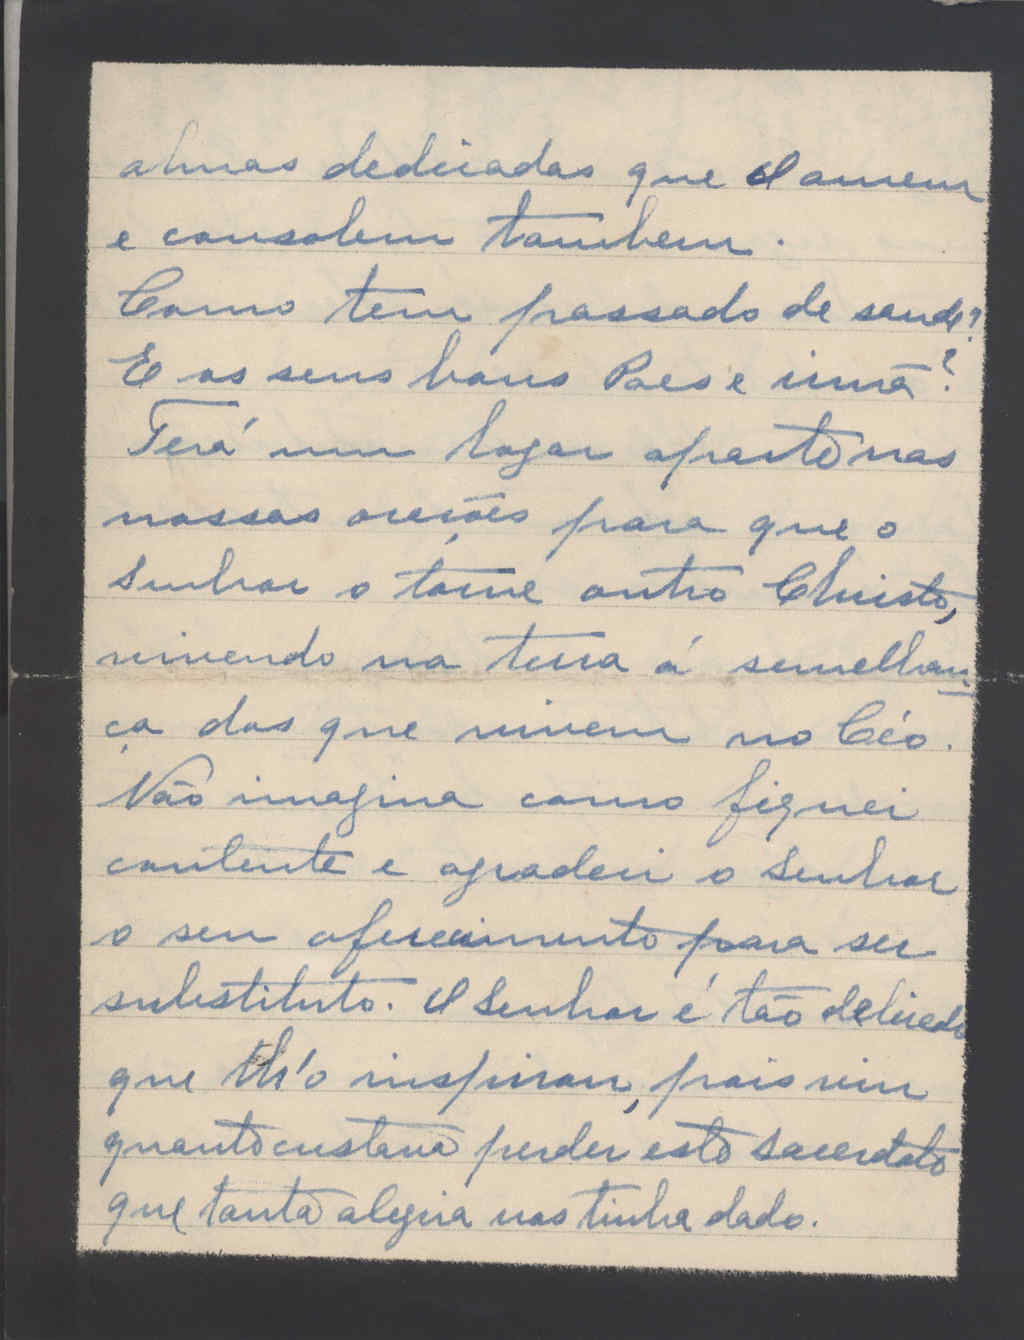 almas dedicadas que O amem
e consolem tambem.
Como tem passado de saude?
E os seus bons Paes e irmã?
Terá um logar aparte nas
nossas orações para que o
Senhor o torne outro Christo,
vivendo na terra á semelhan
ça dos que vivem no Céo.
Não imagina como fiquei
contente e agradeci o Senhor
o seu oferecimento para ser
substituto. O Senhor é tão delicado
que lh'o inspirou, pois viu
quanto custava perder este sacerdote
que tanta alegria nos tinha dado.